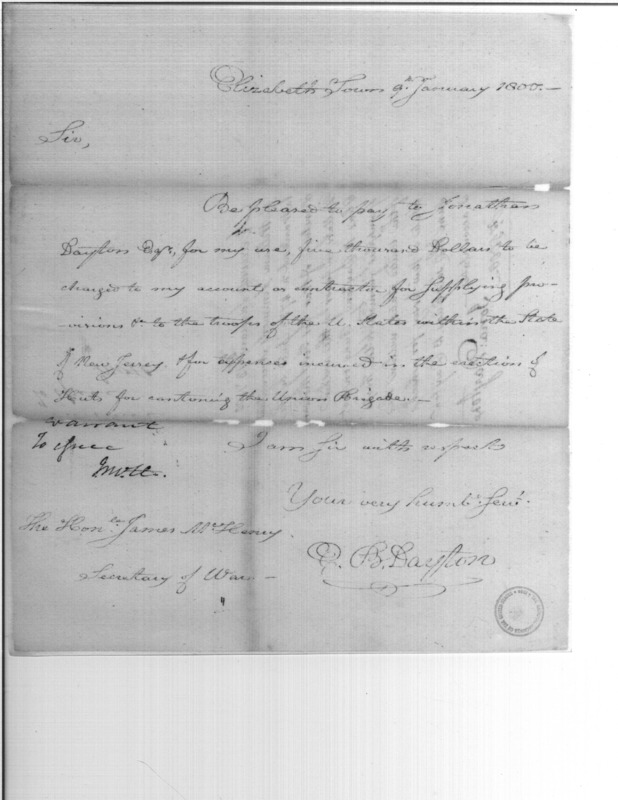 Elizabeth Town 9th January 1800.—
Sir,
Be pleased to pay to Jonathan
Dayton Esqr, for my use, five thousand Dollars to be
charged to my account as contractor for supplying pro-
visions &c to the troops of the U. States within the State
of New Jersey, & for expenses incurred in the erection of
Huts for cantoning the Union Brigade.—
warrant
To issue
JMcH.
I am Sir with respect
Your very humbe. Servt.
The Honble James McHenry
E. B. Dayton
Secretary of War—